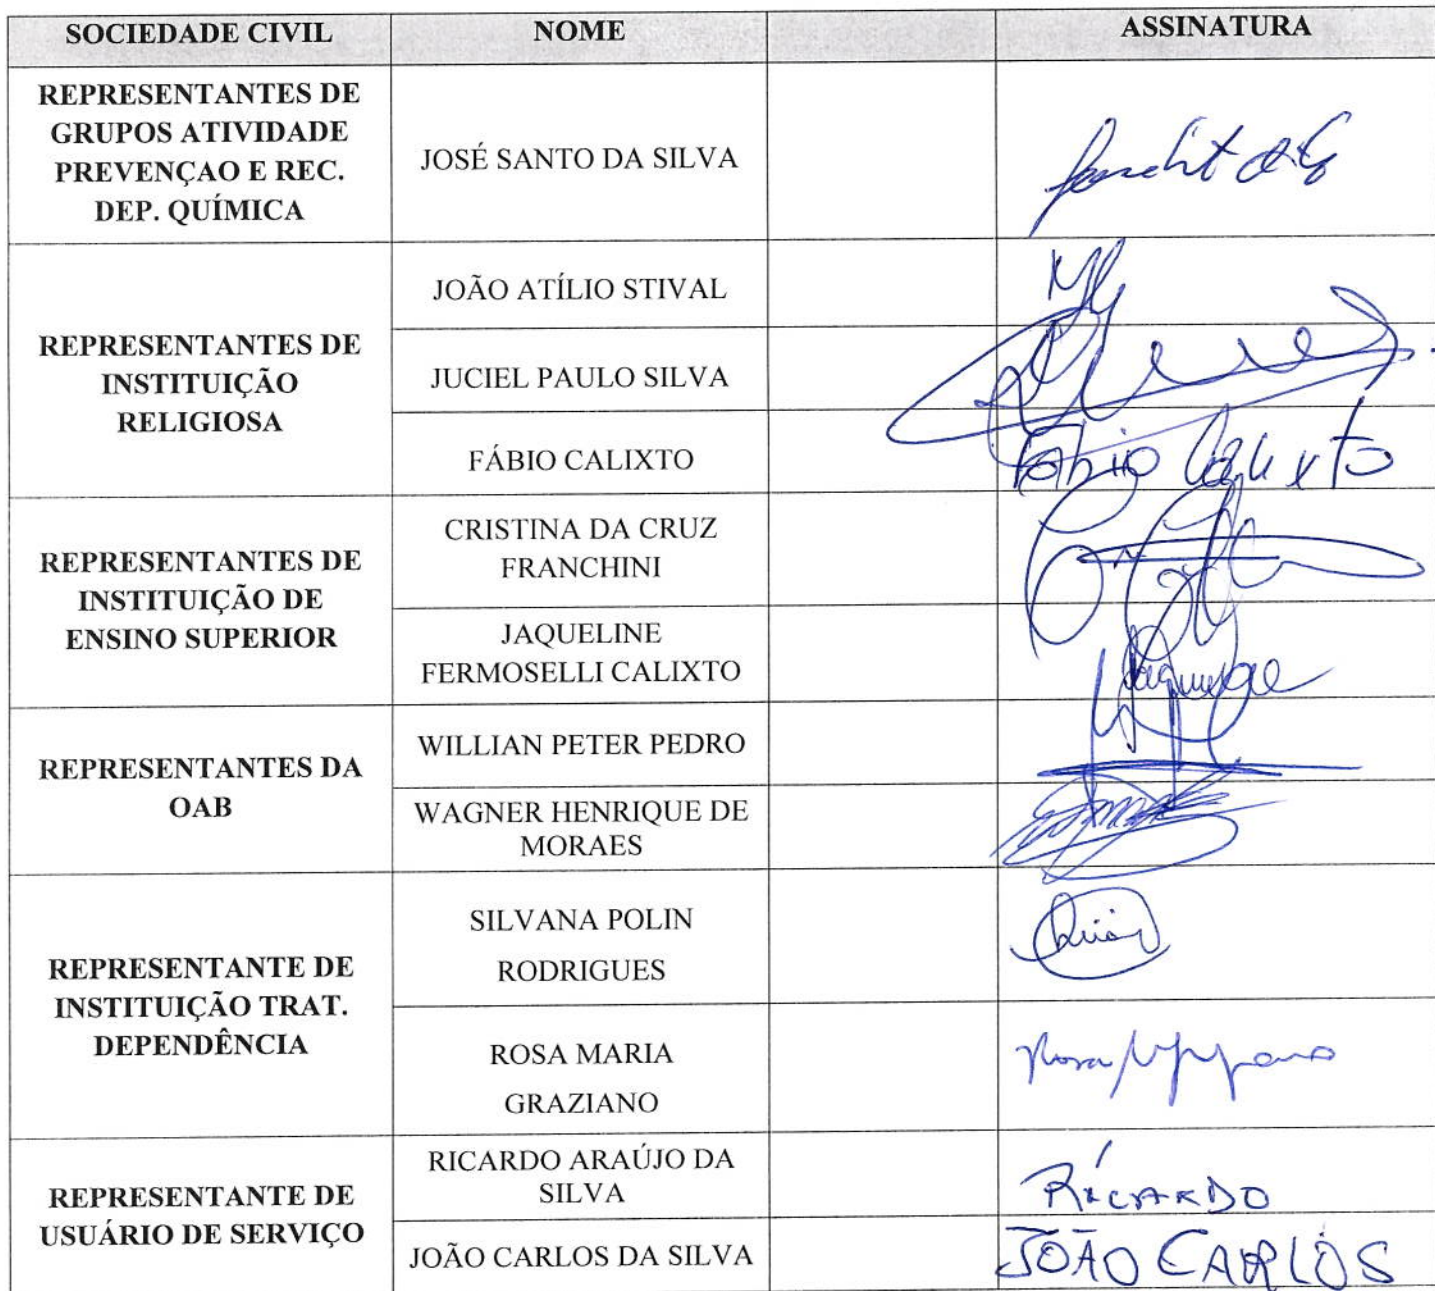 SOCIEDADE CIVIL NOME ASSINATURA
REPRESENTANTES DE
GRUPOS ATIVIDADE
PREVENÇAO E REC.
DEP. QUÍMICA
JOSÉ SANTO DA SILVA
REPRESENTANTES DE
INSTITUIÇÃO
RELIGIOSA
JOÃO ATÍLIO STIVAL
JUCIEL PAULO SILVA
FÁBIO CALIXTO
Fabio Calixto
REPRESENTANTES DE
INSTITUIÇÃO DE
ENSINO SUPERIOR
CRISTINA DA CRUZ
FRANCHINI
JAQUELINE
FERMOSELLI CALIXTO
REPRESENTANTES DA
OAB
WILLIAN PETER PEDRO
WAGNER HENRIQUE DE
MORAES
REPRESENTANTE DE
INSTITUIÇÃO TRAT.
DEPENDÊNCIA
SILVANA POLIN
RODRIGUES
ROSA MARIA
GRAZIANO
Rosa
REPRESENTANTE DE
USUÁRIO DE SERVIÇO
RICARDO ARAÚJO DA
SILVA
RICARDO
JOÃO CARLOS DA SILVA
JOÃO CARLOS